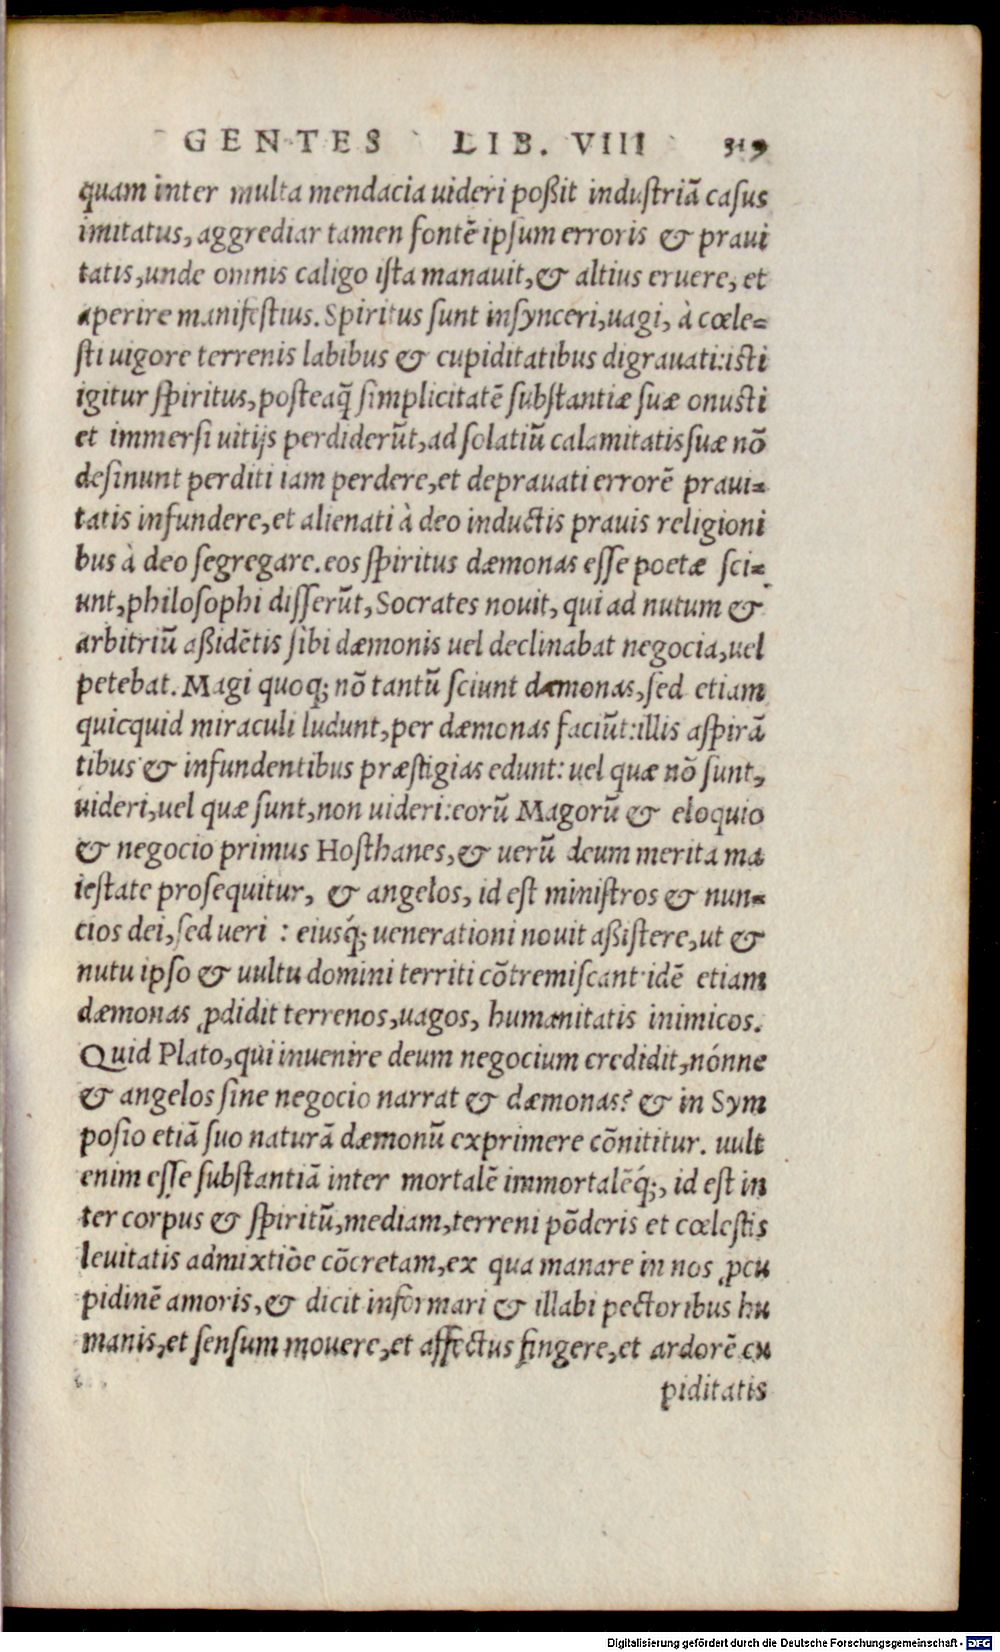 GENTES LIB. VIII 319
quam inter multa mendacia uideri poßit industriã casus
imitatus, aggrediar tamen fontẽ ipsum erroris & praui
tatis, unde omnis caligo ista manauit, & altius eruere, et
aperire manifestius. Spiritus sunt insynceri, uagi, à cœle=
sti uigore terrenis labibus & cupiditatibus digrauati: isti
igitur spiritus, posteaq̃ simplicitatẽ substantiæ suæ onusti
et immersi uitijs perdiderũt, ad solatiũ calamitatis suæ nõ
desinunt perditi iam perdere, et deprauati errorẽ praui=
tatis infundere, et alienati à deo inductis prauis religioni
bus à deo segregare. eos spiritus dæmonas esse poetæ sci=
unt, philosophi disserũt, Socrates nouit, qui ad nutum &
arbitriũ aßidẽtis sibi dæmonis uel declinabat negocia, uel
petebat. Magi quoq; nõ tantũ sciunt dæmonas, sed etiam
quicquid miraculi ludunt, per dæmonas faciũt: illis aspirã
tibus & infundentibus præstigias edunt: uel quæ nõ sunt,
uideri, uel quæ sunt, non uideri: eorũ Magorũ & eloquio
& negocio primus Hosthanes, & uerũ deum merita ma
iestate prosequitur, & angelos, id est ministros & nun=
cios dei, sed ueri : eiusq́; uenerationi nouit aßistere, ut &
nutu ipso & uultu domini territi cõtremiscant: idẽ etiam
dæmonas ꝓdidit terrenos, uagos, humanitatis inimicos.
Quid Plato, qui inuenire deum negocium credidit, nónne
& angelos sine negocio narrat & dæmonas? & in Sym
posio etiã suo naturã dæmonũ exprimere cõnititur. uult
enim esse substantiã inter mortalẽ immortalẽq́;, id est in
ter corpus & spiritũ, mediam, terreni põderis et cœlestis
leuitatis admixtiõe cõcretam, ex qua manare in nos ꝓcu
pidinẽ amoris, & dicit informari & illabi pectoribus hu
manis, et sensum mouere, et affectus fingere, et ardorẽ cu
piditatis
Digitalisierung gefördert durch die Deutsche Forschungsgemeinschaft - DFG